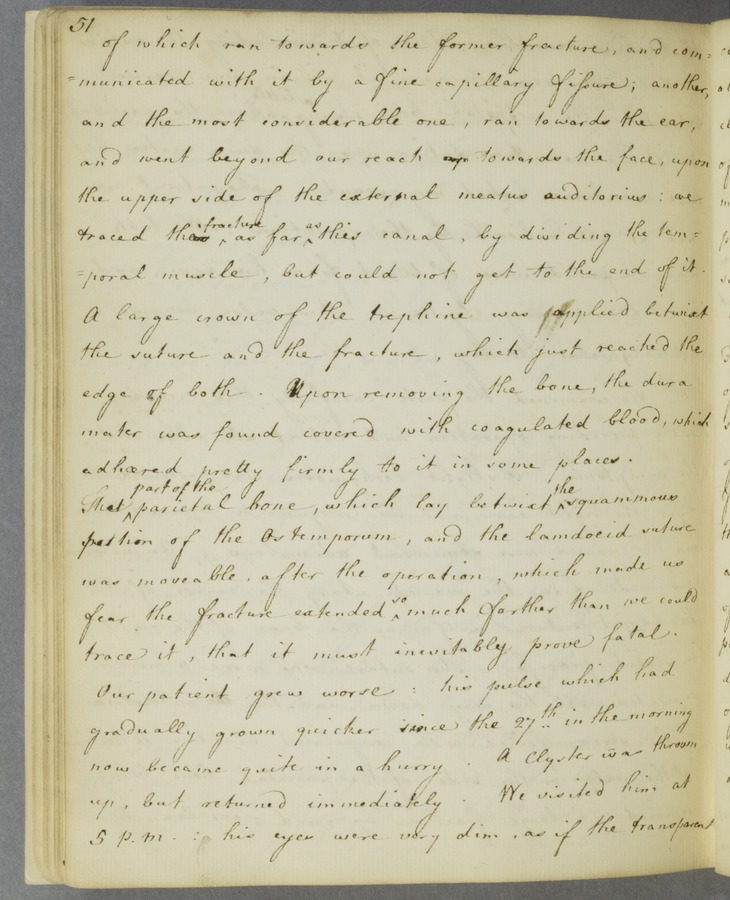 51
of which ran towards the former fracture, and com=
=municated with it by a fine capillary fissure; another,
and the most considerable one, ran towards the ear,
and went beyond our reach towards the face, upon
the upper side of the external meatus auditorius: we
traced the fracture as far as this canal, by dividing the tem=
=poral muscle, but could not get to the end of it.
A large crown of the trephine was applied betwixt
the suture and the fracture, which just reached the
edge of both. Upon removing the bone, the dura
mater was found covered with coagulated blood, which
adhæred pretty firmly to it in some places.
That part of the parietal bone, which lay betwixt the squammous
portion of the Os temporum, and the lamdoeid suture
was moveable, after the operation, which made us
fear the fracture extended so much farther than we could
trace it, that it must inevitably prove fatal.
Our patient grew worse: his pulse which had
gradually grown quicker since the 27th in the morning
now became quite in a hurry. A Clyster was thrown
up, but returned immediately. We visited him at
5 p.m.: his eyes were very dim, as if the transparent